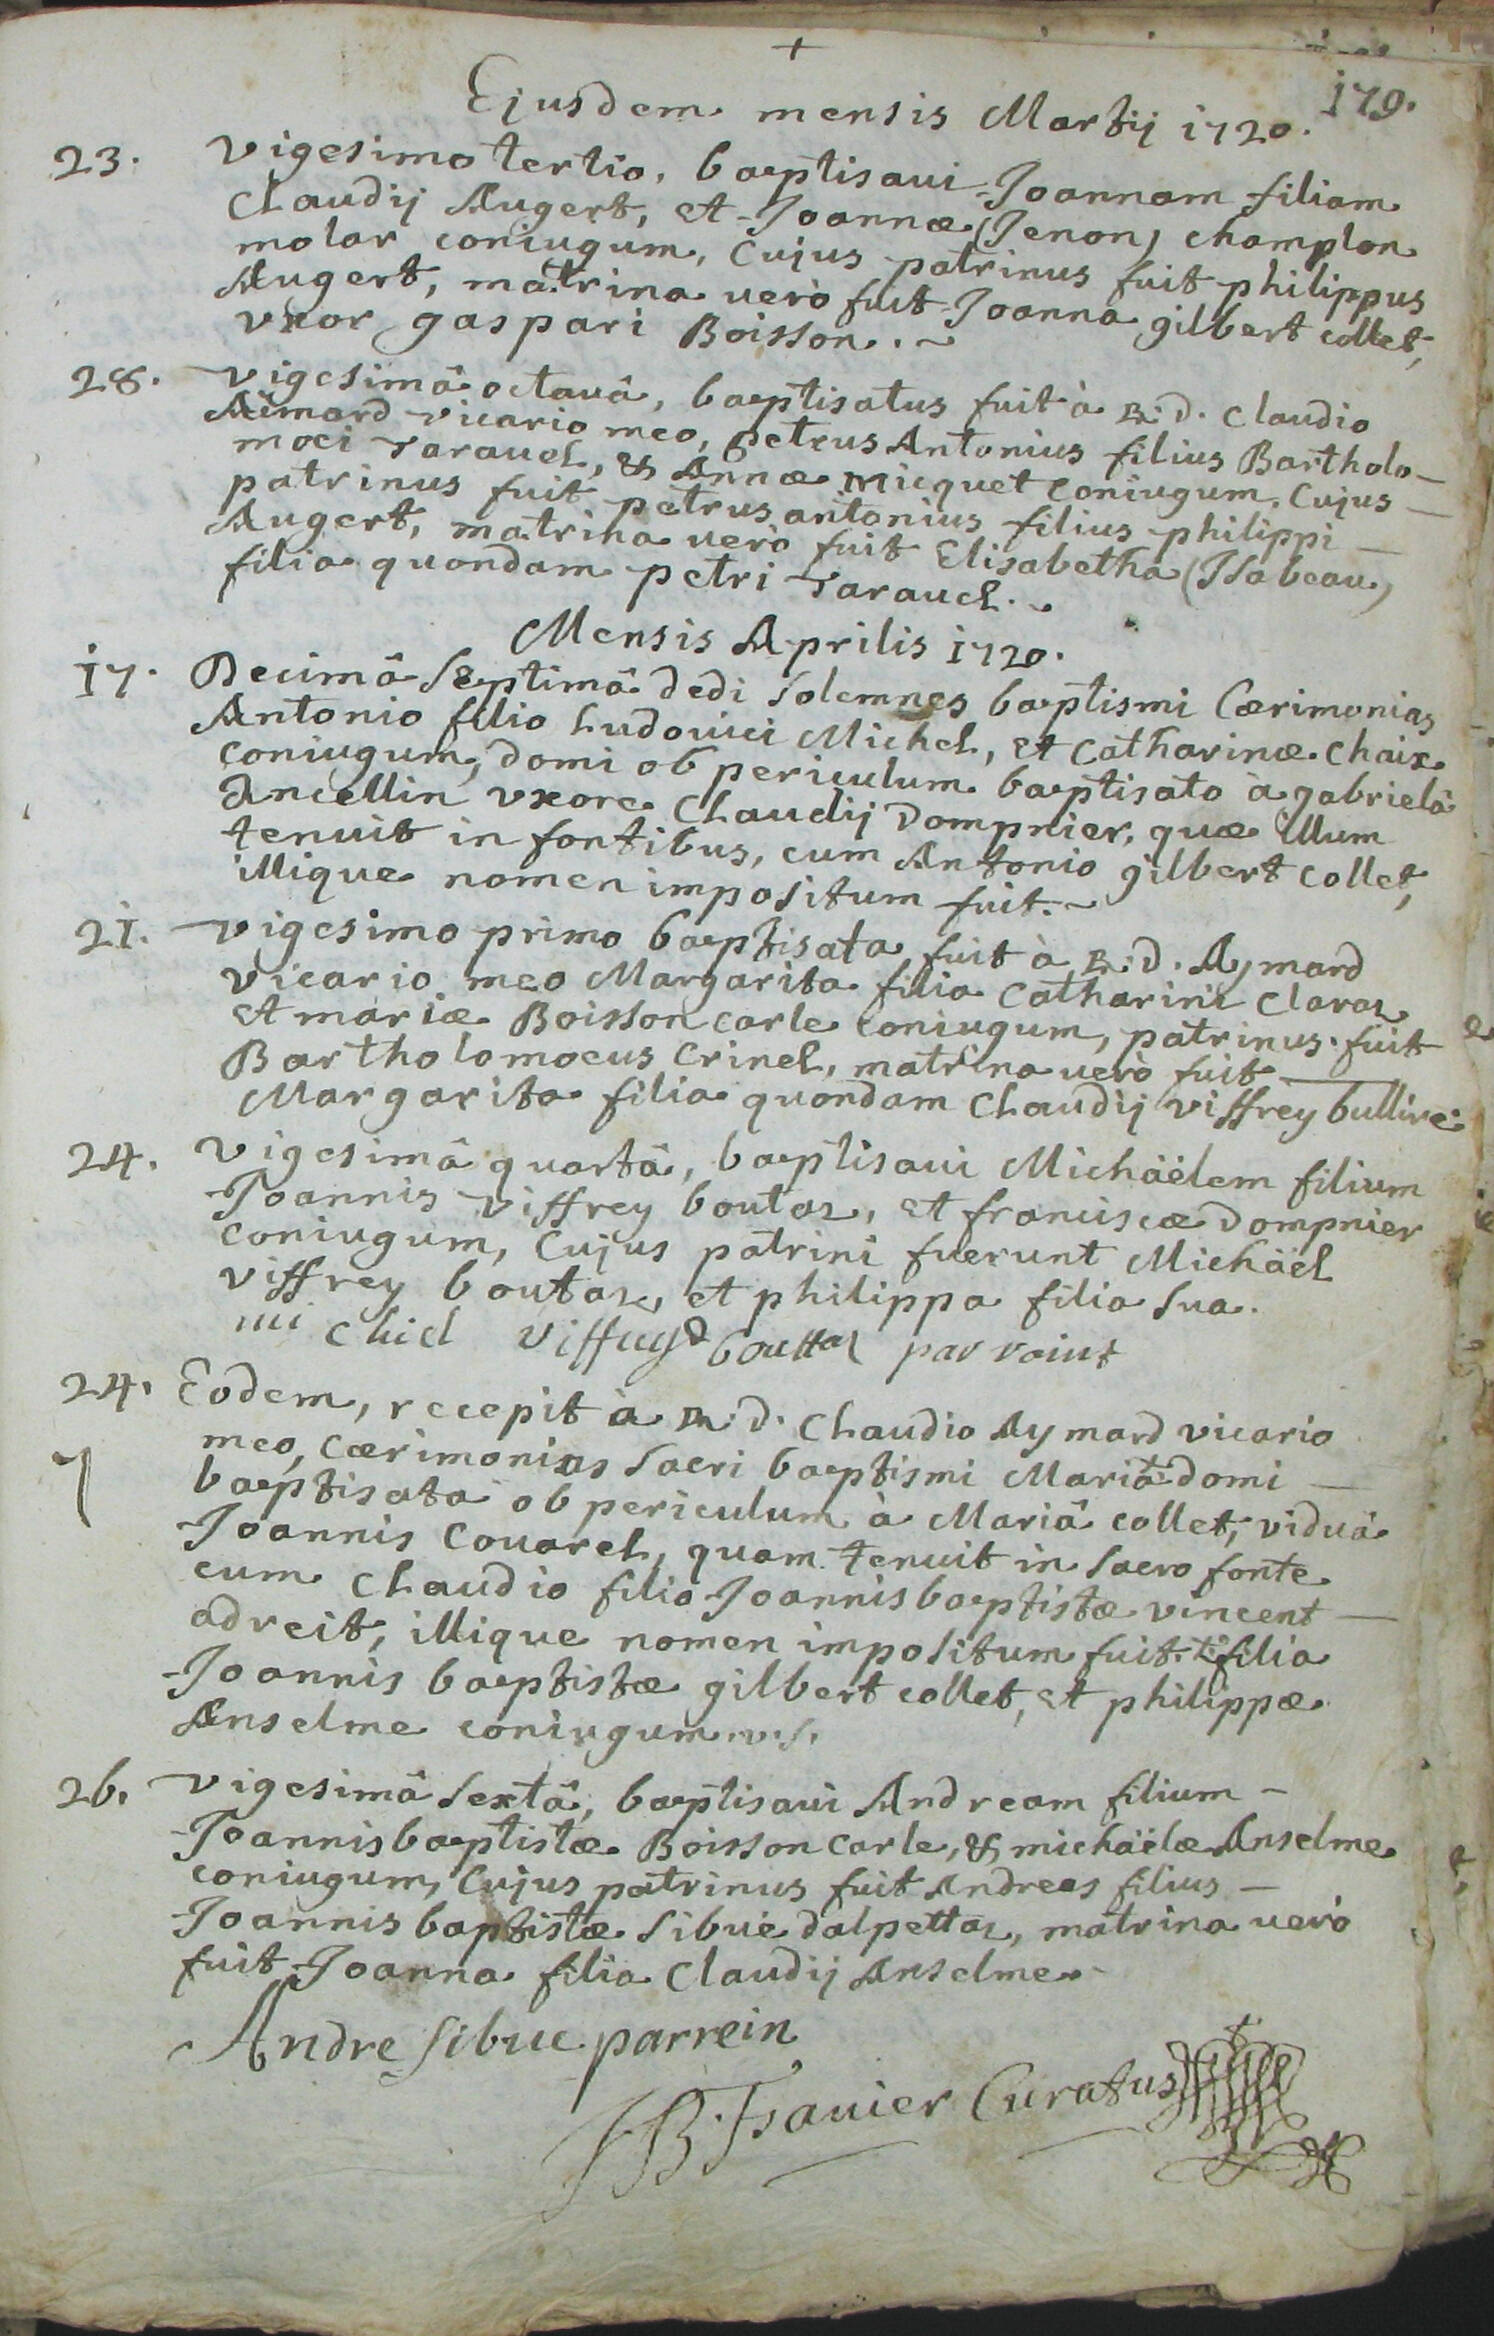 +
179.
Ejusdem mensis Martij 1720.
23. Vigesimo tertio, baptisaui Joannam filiam
Claudij Augert, et Joannæ (Jenon) champlon
molar coniugum, Cujus patrinus fuit philippus
Augert, matrina uerò fuit Joanna gilbert collet,
vxor gaspari Boisson.
28. Vigesimâ octauâ, baptisatus fuit à R. d. Claudio
Aimard vicario meo, petrus Antonius filius Bartholo-
moei Tarauel, & Annæ micquet coniugum, Cujus
patrinus fuit petrus antonius filius philippi
Augert, matrina uerò fuit Elisabetha (Isabeau)
filia quondam petri Tarauel.
Mensis Aprilis 1720.
17. Decimâ Septimâ dedi Solemnes baptismi Cærimonias
Antonio filio Ludouici Michel, et Catharinæ Chaix
coniugum, domi ob periculum baptisato à gabrielâ
Ancellin vxore Claudij Dompnier, quæ illum
tenuit in fontibus, cum Antonio gilbert collet,
illique nomen impositum fuit.
21. Vigesimo primo baptisata fuit à R. d. Aymard
Vicario meo Margarita filia Catharini Claraz
et mariæ Boisson carle coniugum, patrinus fuit
Bartholomoeus Crinel, matrina uerò fuit
Margarita filia quondam Claudij viffrey bullire.
24. Vigesimâ quartâ, baptisaui Michäélem filium
Joannis Viffrey boutaz, et franciscæ Dompnier
coniugum, Cujus patrini fuerunt Michäel
Viffrey boutaz, et philippa filia Sua.
mi chiel Viffrey bouttaz par raint
24. Eodem, recepit à R. d. Claudio Aymard vicario
meo, cærimonias Sacri baptismi Maria domi
baptisata ob periculum à Mariâ collet, viduâ
Joannis Couarel, quam tenuit in Sacro fonte
cum Claudio filio Joannis baptistæ vincent
adreit, illique nomen impositum fuit. filia
Joannis baptistæ gilbert collet, et philippæ
Anselme coniugum.
26. Vigesimâ Sextâ, baptisaui Andream filium
Joannis baptistæ Boisson carle, & michäelæ Anselme
coniugum, Cujus patrinus fuit Andreas filius
Joannis baptistæ Sibue dalpettaz, matrina uerò
fuit Joanna filia Claudij Anselme.
Andre Sibue parrein
JB. Fsauier Curatus